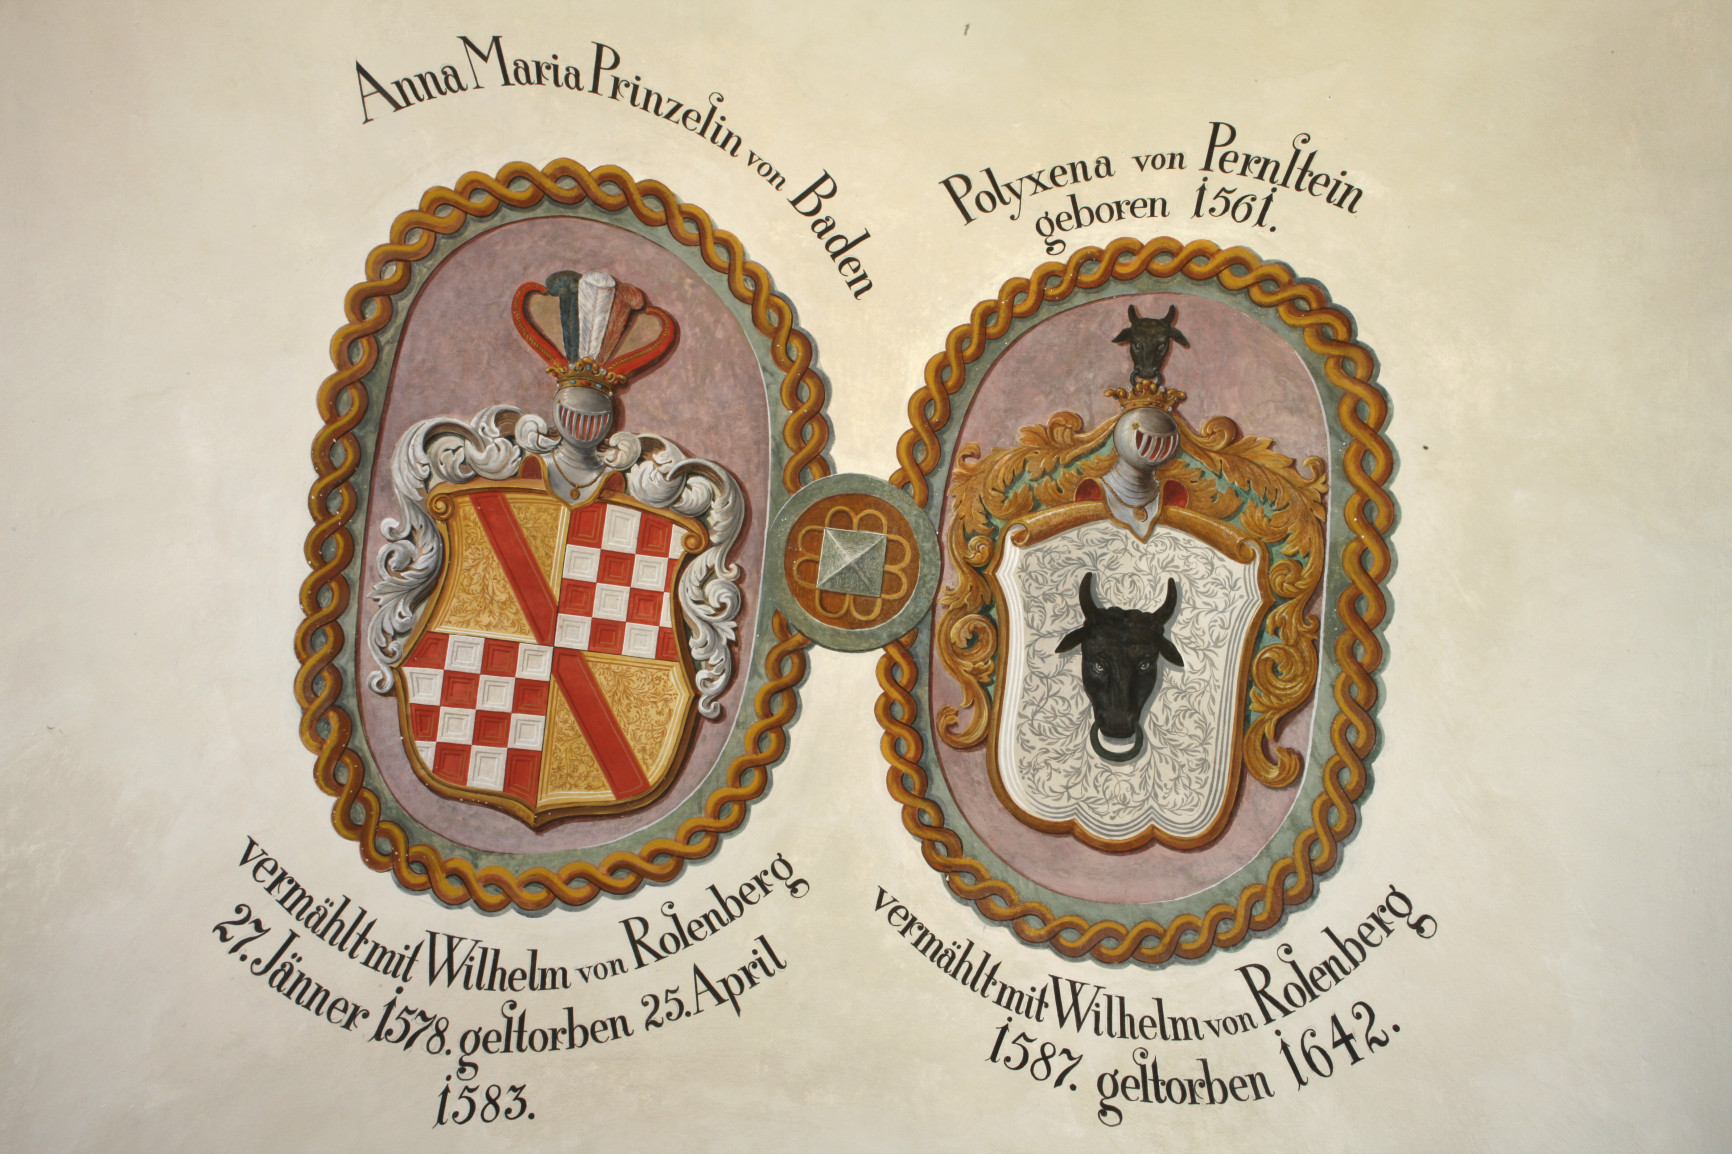 Anna Maria Prinzeſin von Baden
vermählt mit Wilhelm von Roſenberg
27. Jänner 1578. geſtorben 25. April
1583.
Polyxena von Pernſtein
geboren 1561.
vermählt mit Wilhelm von Roſenberg
1587. geſtorben 1642.